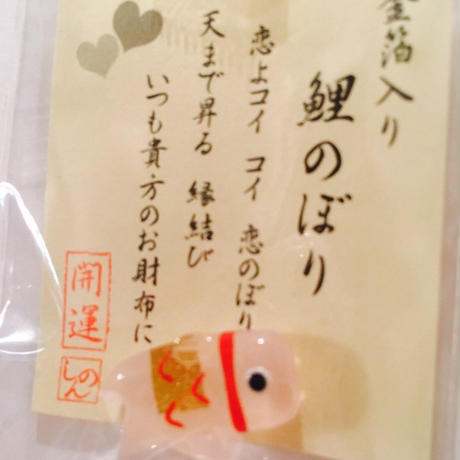 金箔入り
鯉のぼり
恋よコイ コイ 恋のぼり
天まで昇る 縁結び
いつも貴方のお財布に
開運
しんの